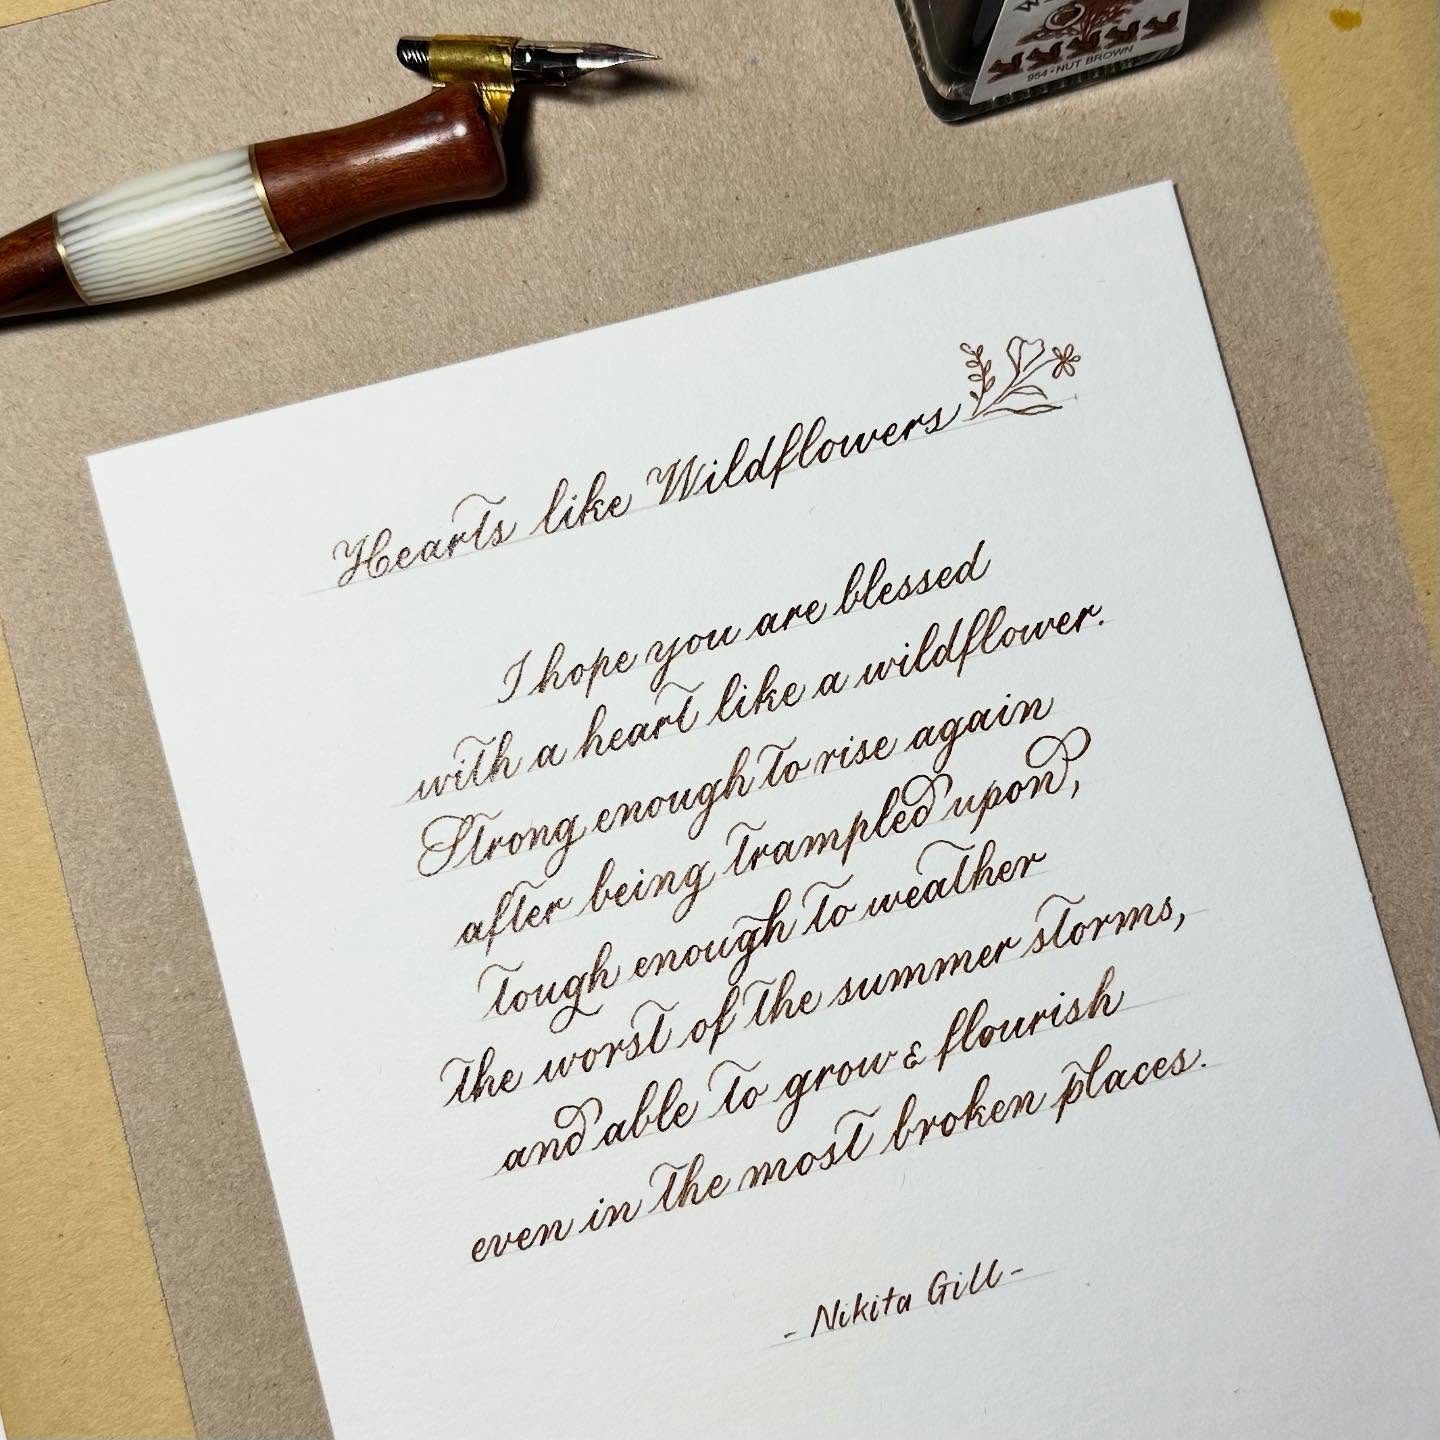 W
954 · NUT BROWN
Hearts like Wildflowers
I hope you are blessed
with a heart like a wildflower.
Strong enough to rise again
after being trampled upon,
tough enough to weather
the worst of the summer storms,
and able to grow & flourish
even in the most broken places.
- Nikita Gill -